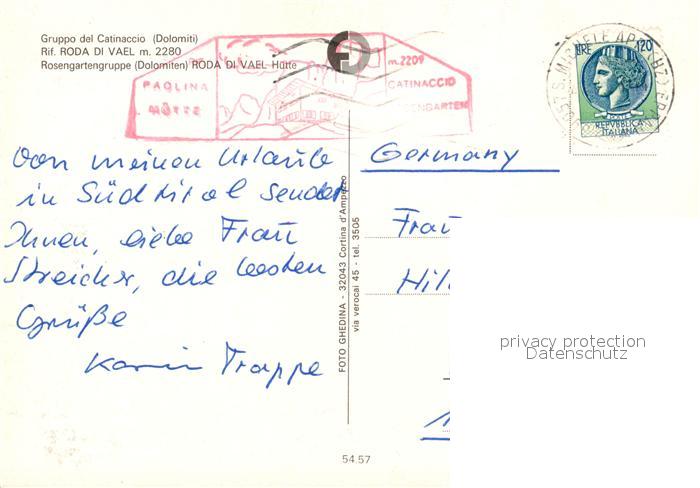 Gruppo del Catinaccio (Dolomiti)
Rif. RODA DI VAEL m. 2280
Rosengartengruppe (Dolomiten) RODA DI VAEL Hütte
PAOLINA
HÜTTE
m. 2209
CATINACCIO
ROSENGARTEN
LIRE 120
POSTE
REPVBBLICA
ITALIANA
Von meinen Urlaube
in Südtirol sendet
Ihnen, liebe Frau
Streicher, die besten
Grüße
Karin Trappe
FOTO GHEDINA - 32043 Cortina d'Ampezzo
via verocai 45 - tel. 3505
Germany
Frau
Hil
privacy protection
Datenschutz
54.57